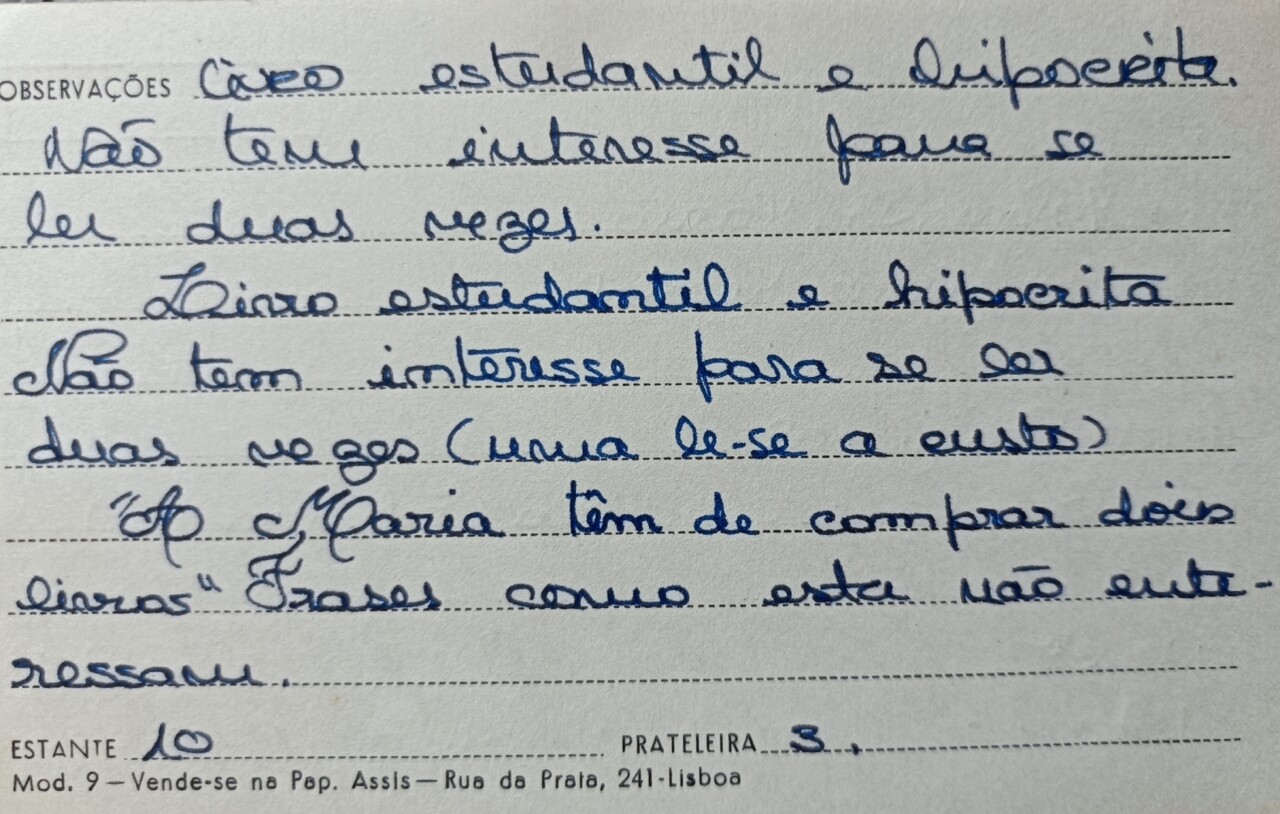 OBSERVAÇÕES Livro estudantil e hipócrita.
Não tem interesse para se
ler duas vezes.
Livro estudantil e hipocrita
Não tem interesse para se ler
duas vezes (uma le-se a custo)
"A Maria têm de comprar dois
livros" Frases como esta não ente-
ressam.
ESTANTE 10 PRATELEIRA 3.
Mod. 9 — Vende-se na Pap. Assis — Rua da Prata, 241-Lisboa